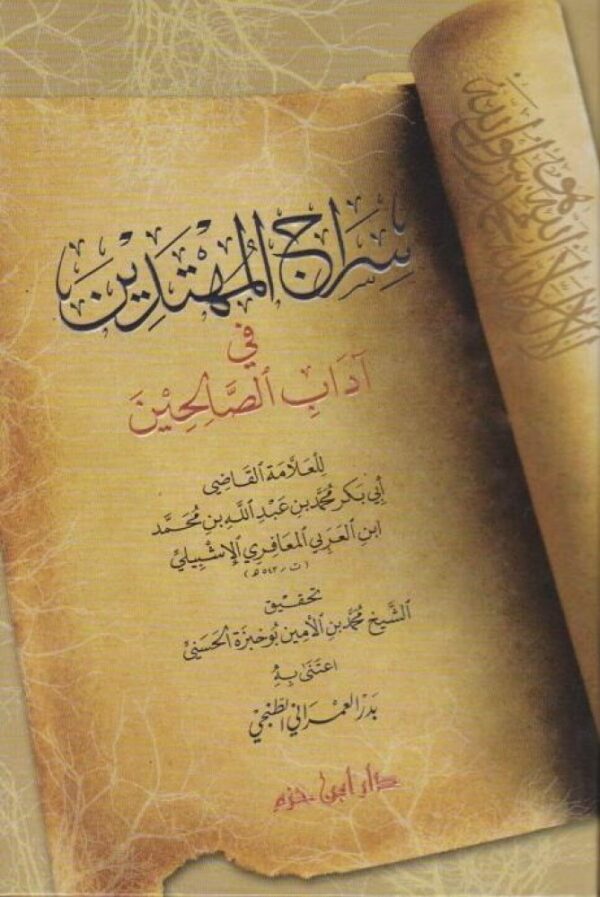 سِرَاجُ المُهْتَدِيْن
في
آدَابِ الصَّالِحِيْنَ
لِلْعَلَّامَةِ القَاضِي
أَبِي بَكر مُحَمَّد بن عَبْدِ اللَّهِ بنِ مُحَمَّد
ابنِ العَرَبي المَعَافِرِي الإِشْبِيلِيِّ
(ت ٥٤٣ هـ)
تَحقِيق
الشَّيخ مُحَمَّد بنِ الأَمِين بُوخُبزَة الحَسَنيّ
اعتَنَى بِهِ
بَدْر العِمرَاني الطَّنجيّ
دار ابن حزم
لا إله إلا الله محمد رسول الله